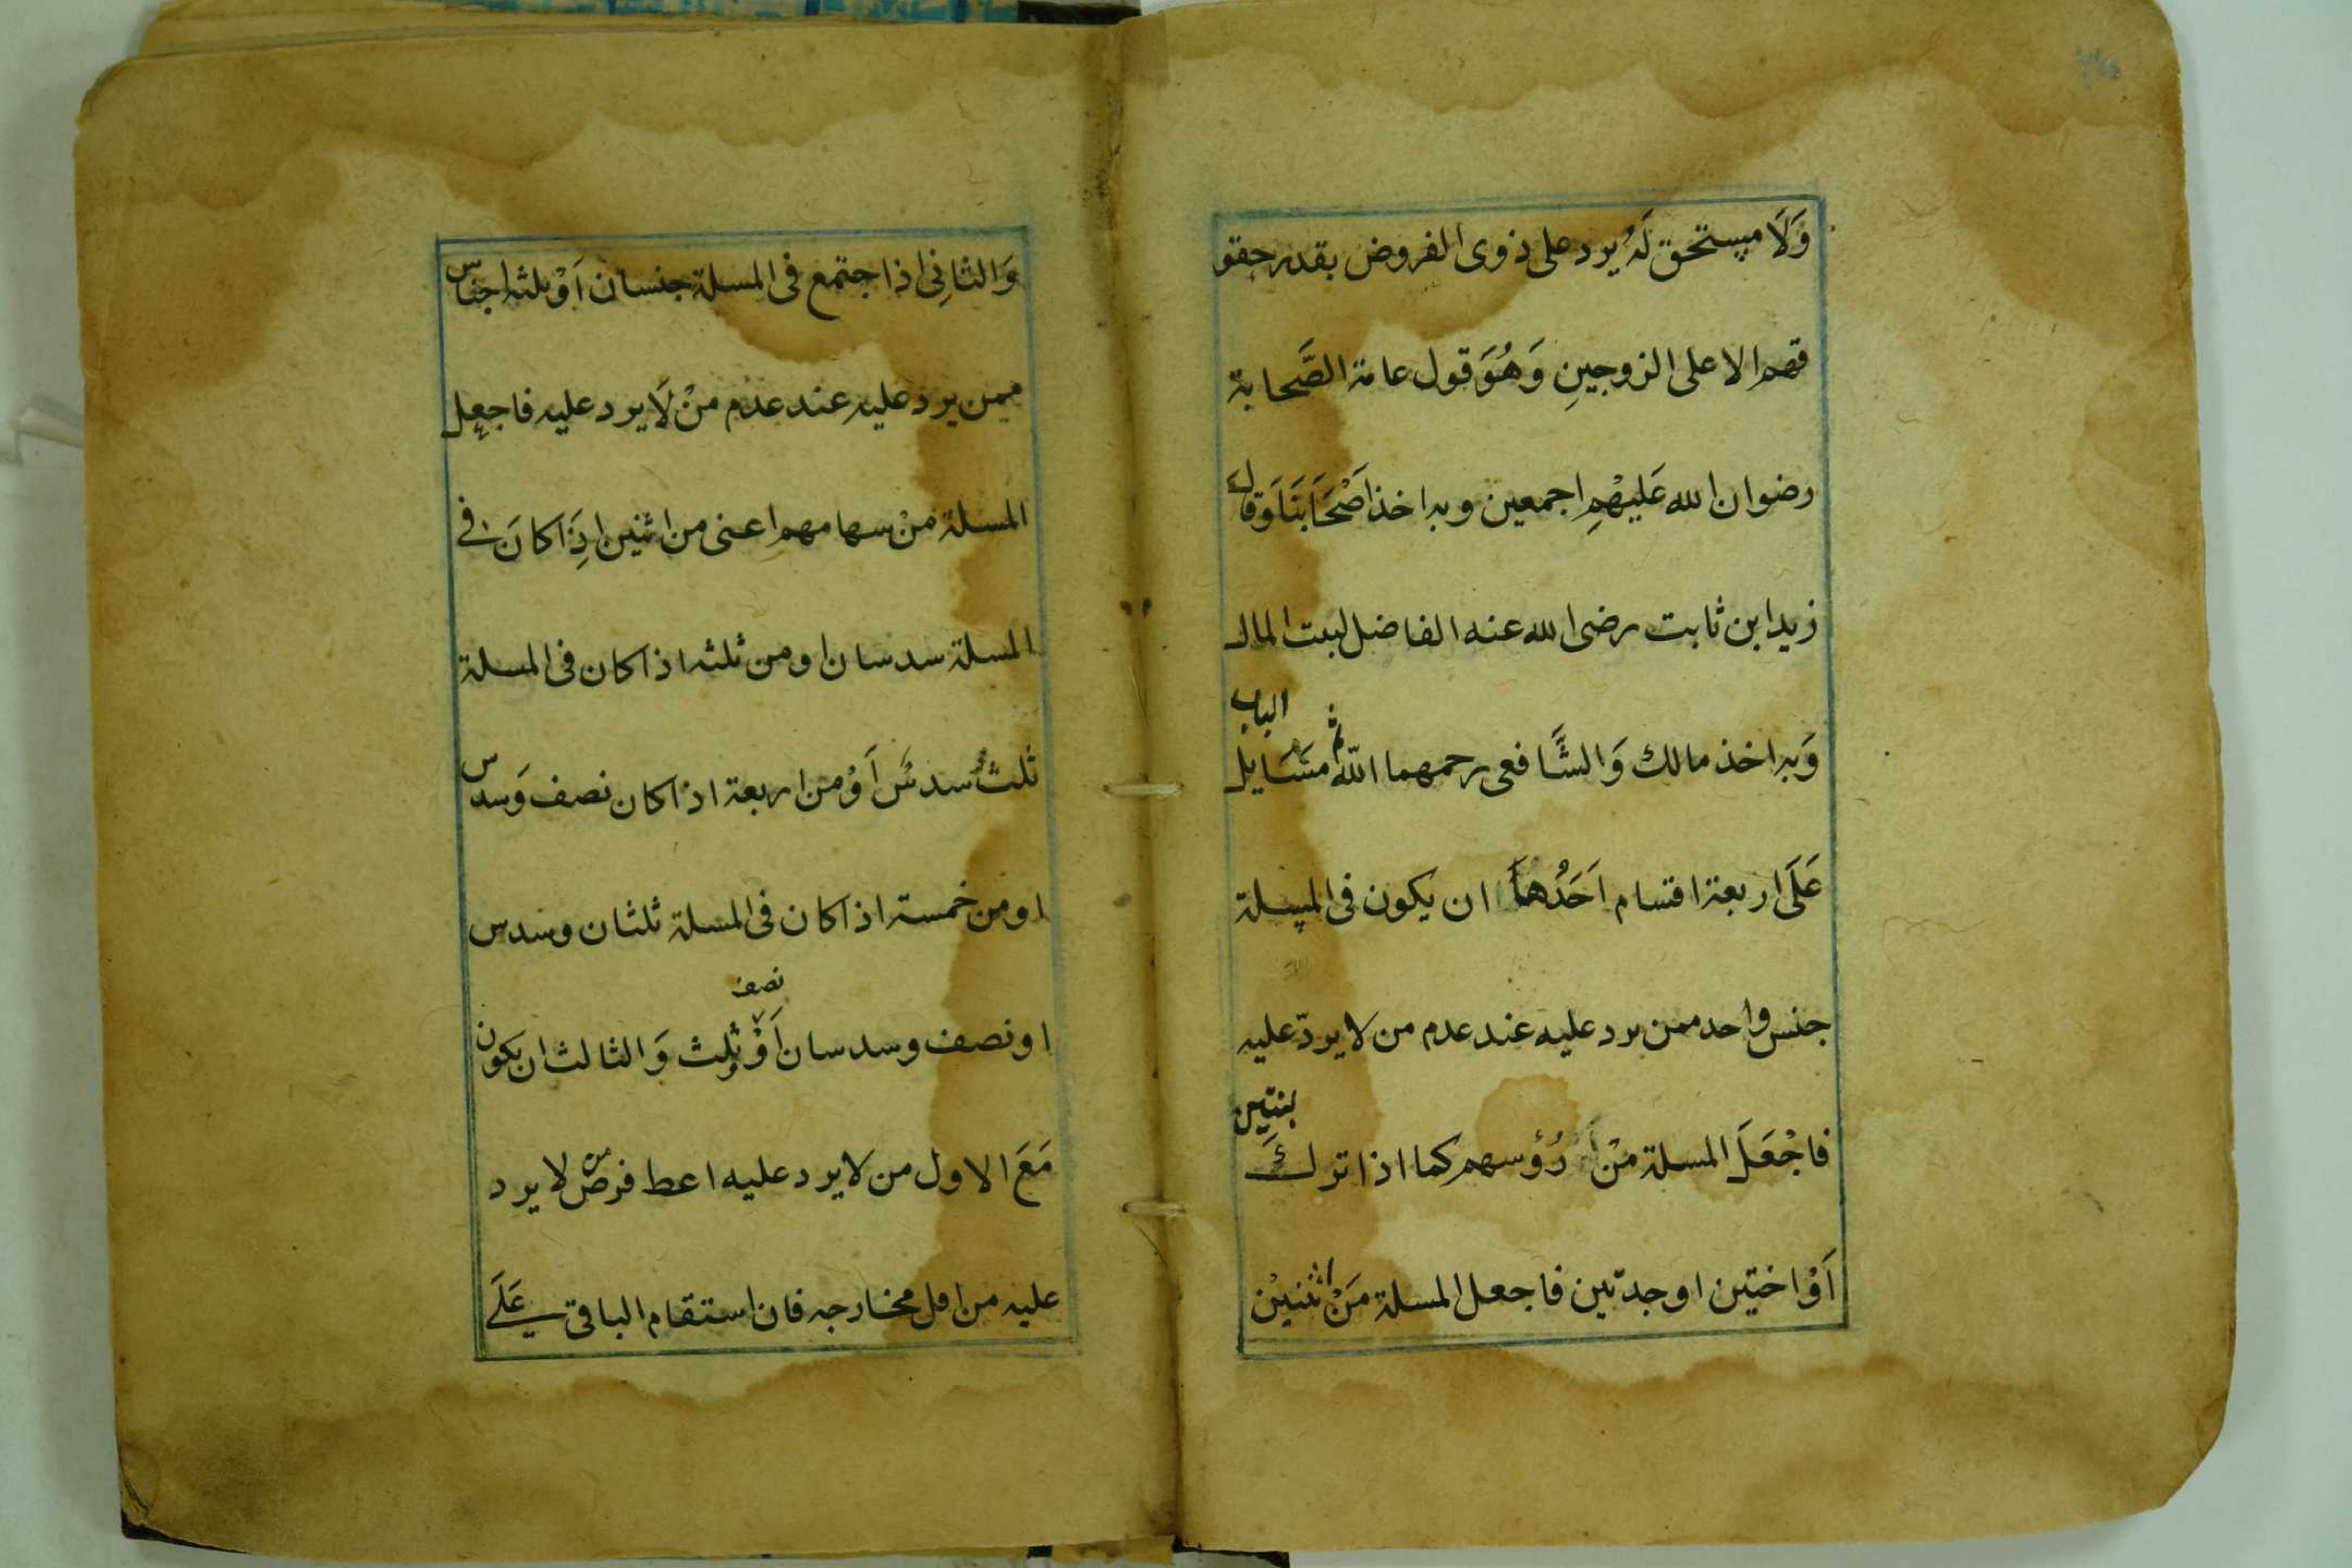 وَلَا مستحق لَهُ يرد على ذوى الفروض بقدر حقو
قهم الا على الزوجينِ وَهُوَ قول عامة الصَّحابة
رضوان الله عَليهْمِ اجمعين وبه اخذ اَصْحَابَنَا وَقالَ
زيد ابن ثابت رضى الله عنه الفاضل لبيت المال
الباب
وَبه اخذ مالك وَالشَّافعى رحمهما اللّه ثم مسَايل
عَلَى اربعة اقسام اَحَدُهمَا ان يكون فى المسلة
جنس واحد ممن يرد عليه عند عدم من لا يردّ عليه
بنتين
فاجْعَلَ المسلة مِنْ رُؤسهم كما اذا تركَ
اَوْ اختين او جدتين فاجعل المسلة مَنْ اثنينْ
وَالثانِى اذا اجتمع فى المسلة جنسان اَوْ ثلثه اجناس
ممن يرد عليه عند عدم منْ لَا يرد عليه فاجعل
المسلة منْ سهامهم اعنى من اثنين اِذَا كانَ فى
المسلة سدسان او من ثلثه اذا كان فى المسلة
ثلثُ سدسُ اَوْ من اربعة اذا كان نصف وَسدس
او من خمسة اذا كان فى المسلة ثلثان وسدس
نصف
او نصف وسدسان اَوْ وثلث وَالثالث ان يكون
مَعَ الاول من لا يرد عليه اعط فرض من لا يرد
عليه من اقل مخارجه فان استقام الباقى عَلَى